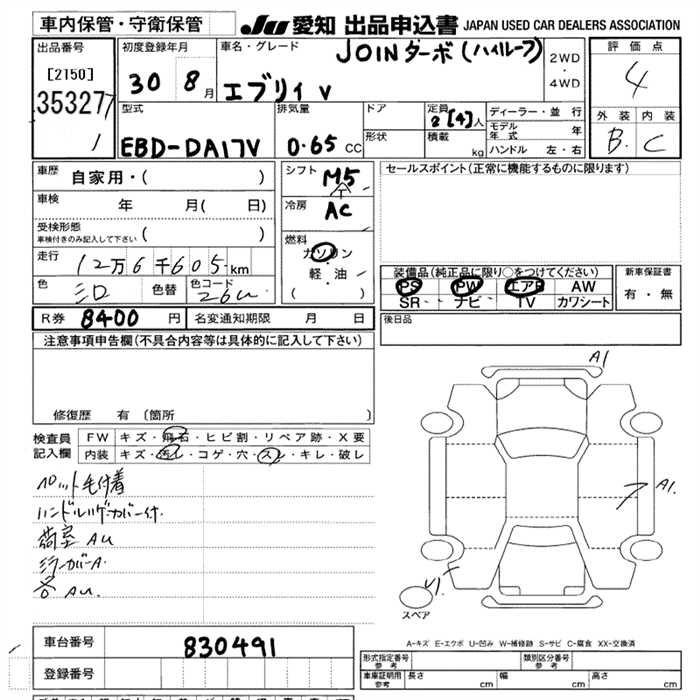 車内保管・守衛保管
JU 愛知 出品申込書 JAPAN USED CAR DEALERS ASSOCIATION
出品番号
[2150]
35327
1
初度登録年月
30 8月
車名・グレード
JOINターボ(ハイルーフ)
エブリィ V
2WD
・
4WD
評価点
4
外装 内装
B. C
型式
EBD-DA17V
排気量
0.65 CC
ドア
形状
定員
2[4]人
積載
kg
ディーラー・並行
モデル年式 年
ハンドル 左・右
車歴
自家用・( )
車検
年 月( 日)
受検形態
車検付きのみ記入して下さい ( )
走行
12万6千605km
色
シロ
色替
色コード
26U
シフト
M5
冷房
AC
燃料
ガソリン
軽・油
( )
セールスポイント(正常に機能するものに限ります)
装備品(純正品に限り○をつけてください)
PS PW エアB AW
SR ナビ TV カワシート
新車保証書
有・無
R券 8400 円 名変通知期限 月 日
後日品
注意事項申告欄(不具合内容等は具体的に記入して下さい)
修復歴 有 〔箇所 〕
検査員
記入欄
FW キズ・飛石・ヒビ割・リペア跡・X要
内装 キズ・汚レ・コゲ・穴・スレ・キレ・破レ
ペット毛付着
ハンドルハゲカバー付.
荷室 AU
ミラーカバーA.
各 AU.
A1
A1.
U1.
スペア
A-キズ E-エクボ U-凹み W-補修跡 S-サビ C-腐食 XX-交換済
車台番号 830491
登録番号
形式指定番号
参考
類別区分番号
参考
車庫証明用
参考
長さ cm 幅 cm 高さ cm